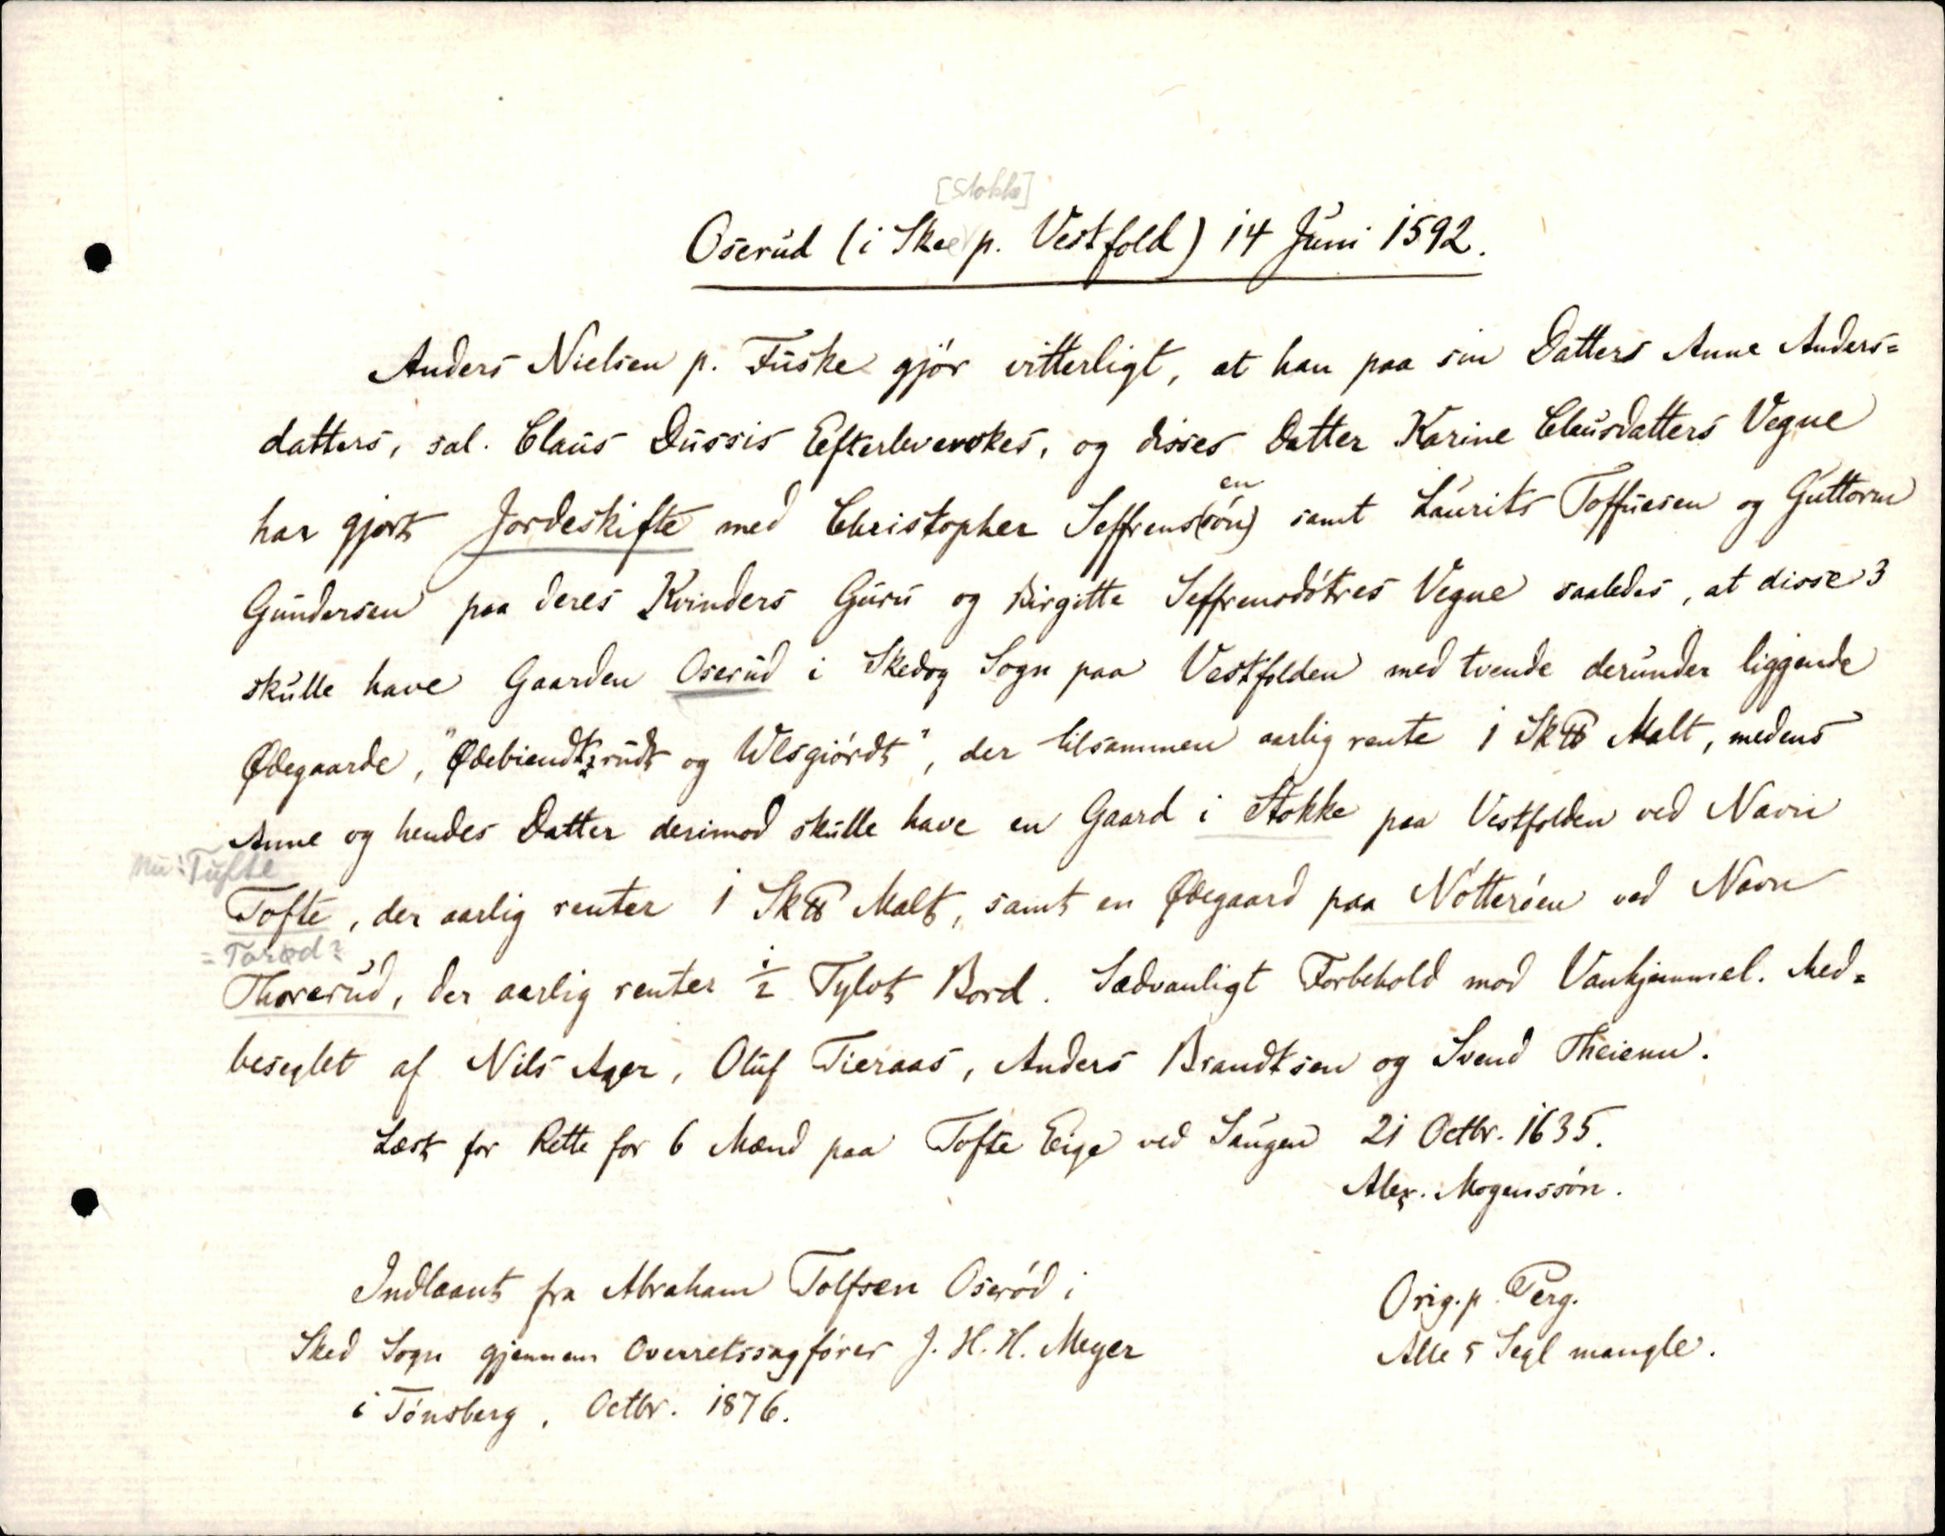 [Stokke]
Oserud (i Skee p. Vestfold) 14 Juni 1592.
Anders Nielsen p. Fuske gjør vitterligt, at han paa sin Datters Anne Anders=
datters, sal. Claus Dussis Efterleverskes, og disses Datter Karine Clausdatters Vegne
har gjort Jordeskifte med Christopher Seffrens(søn) en samt Laurits Toffuesen og Guttorm
Gundersen paa deres Kvinders Guru og Birgitte Seffrensdøtres Vegne saaledes, at disse 3
skulle have Gaarden Oserud i Skedog Sogn paa Vestfolden med tvende derunder liggende
Ødegaarde, "Ødebiendtzrudt og Wlsgiördt", der tilsammen aarlig rente 1 Sk℔ Malt, medens
Anne og hendes Datter derimod skulle have en Gaard i Stokke paa Vestfolden ved Navn
nu: Tufte
Tofte, der aarlig renter 1 Sk℔ Malt, samt en Ødegaard paa Nötteröen ved Navn
= Tarød?
Thorerud, der aarlig renter ½ Tylvt Bord. Sædvanligt Forbehold mod Vanhjemmel. Med=
beseglet af Nils Ager, Oluf Tieraas, Anders Brandtsen og Svend Theienn.
Læst for Rette for 6 Mænd paa Tofte Eige ved Saugen 21 Octbr. 1635.
Alex. Mogenssön.
Indlaant fra Abraham Tolfsen Oseröd i
Sked Sogn gjennem Overretssagförer J. H. H. Meyer
i Tönsberg, Octbr. 1876.
Orig. p. Perg.
Alle 5 Segl mangle.